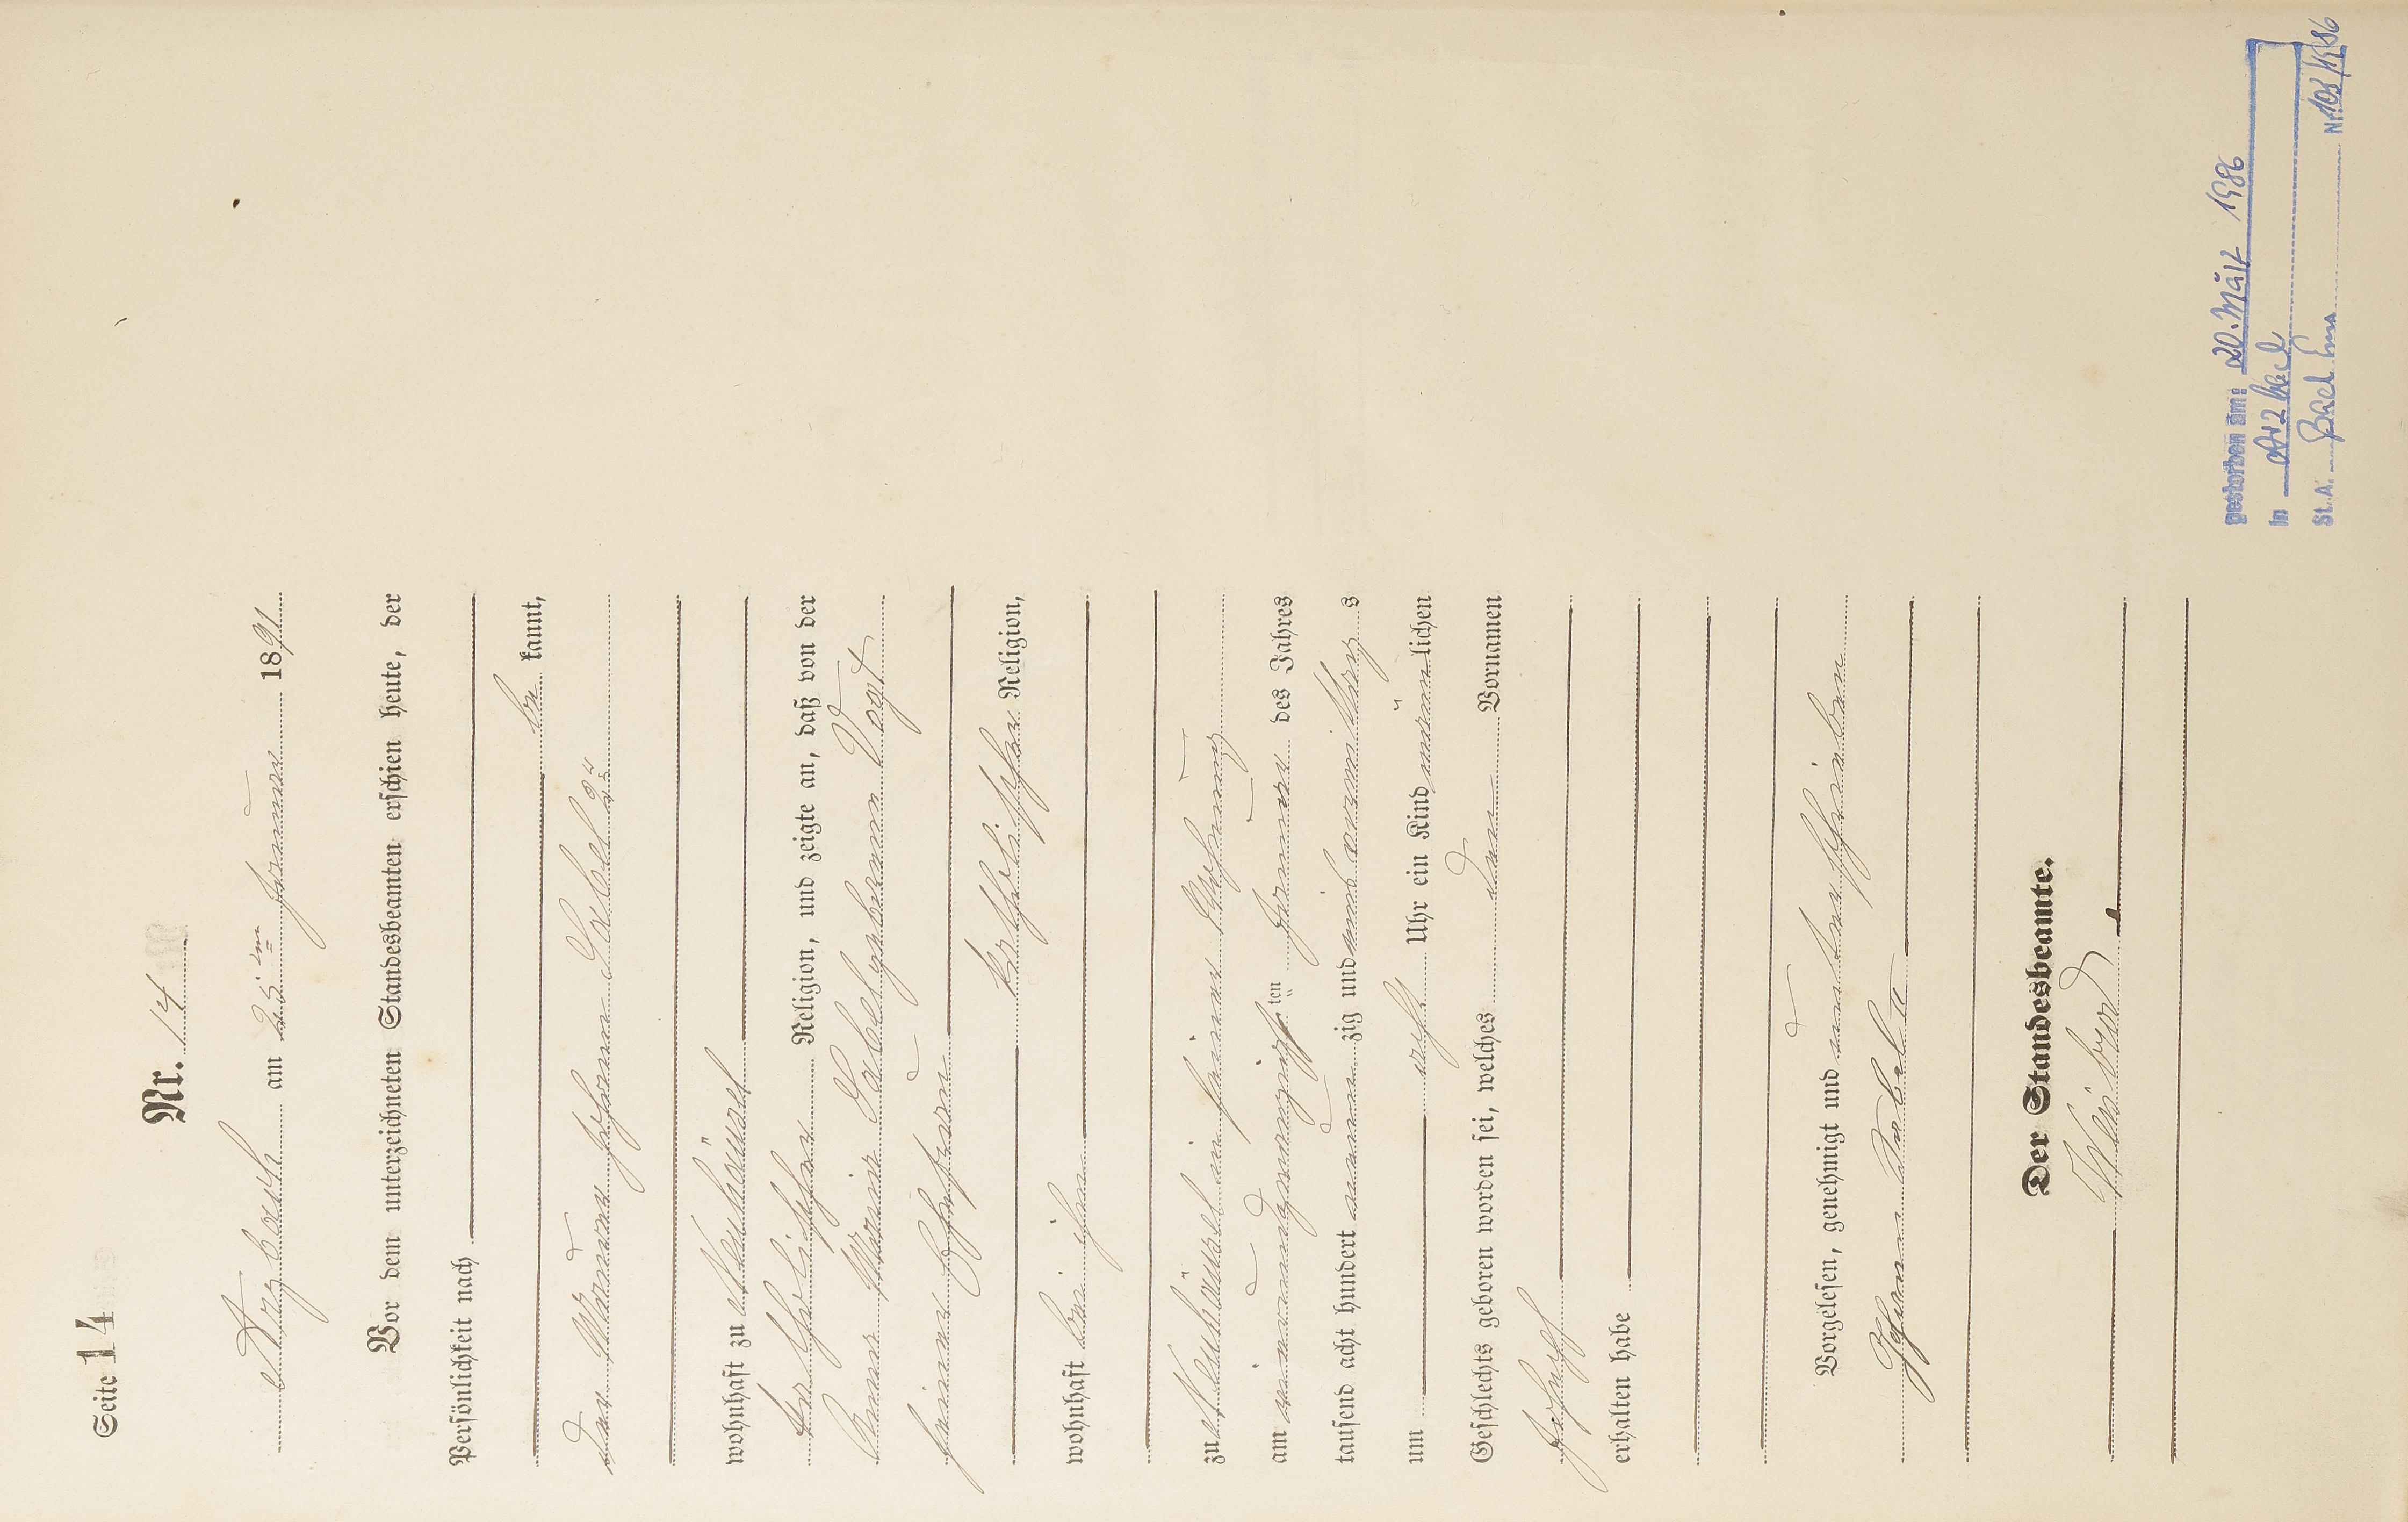 Seite 14
Nr. 14
Arzbach am 25ten Januar 1891
Vor dem unterzeichneten Standesbeamten erschien heute, der
Persönlichkeit nach
be kannt,
der Maurer Johann
wohnhaft zu Neuhäusel
katholischer Religion, und zeigte an, daß von der
Anna Maria geborenen Vogt
seiner Ehefrau
katholischer Religion,
wohnhaft bei ihm
zu Neuhäusel in seiner Wohnung
am einundzwanzigsten Januar des Jahres
tausend acht hundert neun zig und eins Vormittags
um acht Uhr ein Kind männlichen
Geschlechts geboren worden sei, welches den Vornamen
Joseph
erhalten habe
Vorgelesen, genehmigt und unterschrieben
Johann
Der Standesbeamte.
gestorben am: 20. März 1986
in Arzbach
St. A. Bad Ems Nr. 103/1986